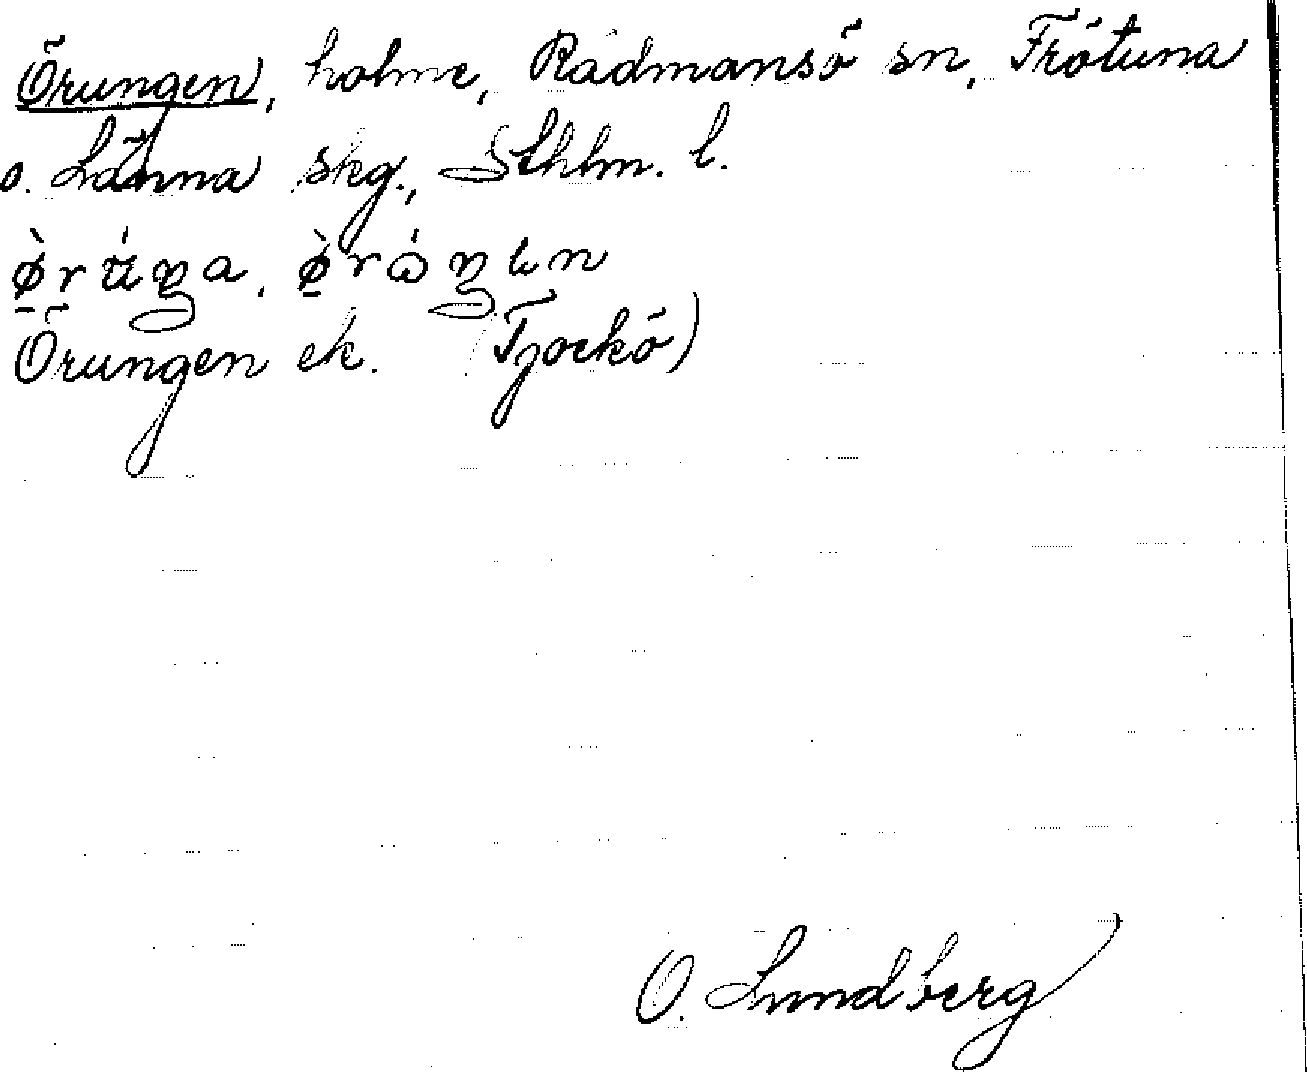 Örungen, holme, Rådmansö sn, Frötuna
o. Länna skg., Sthlm. l.
Örungen ek. (Tjockö)
O. Lundberg